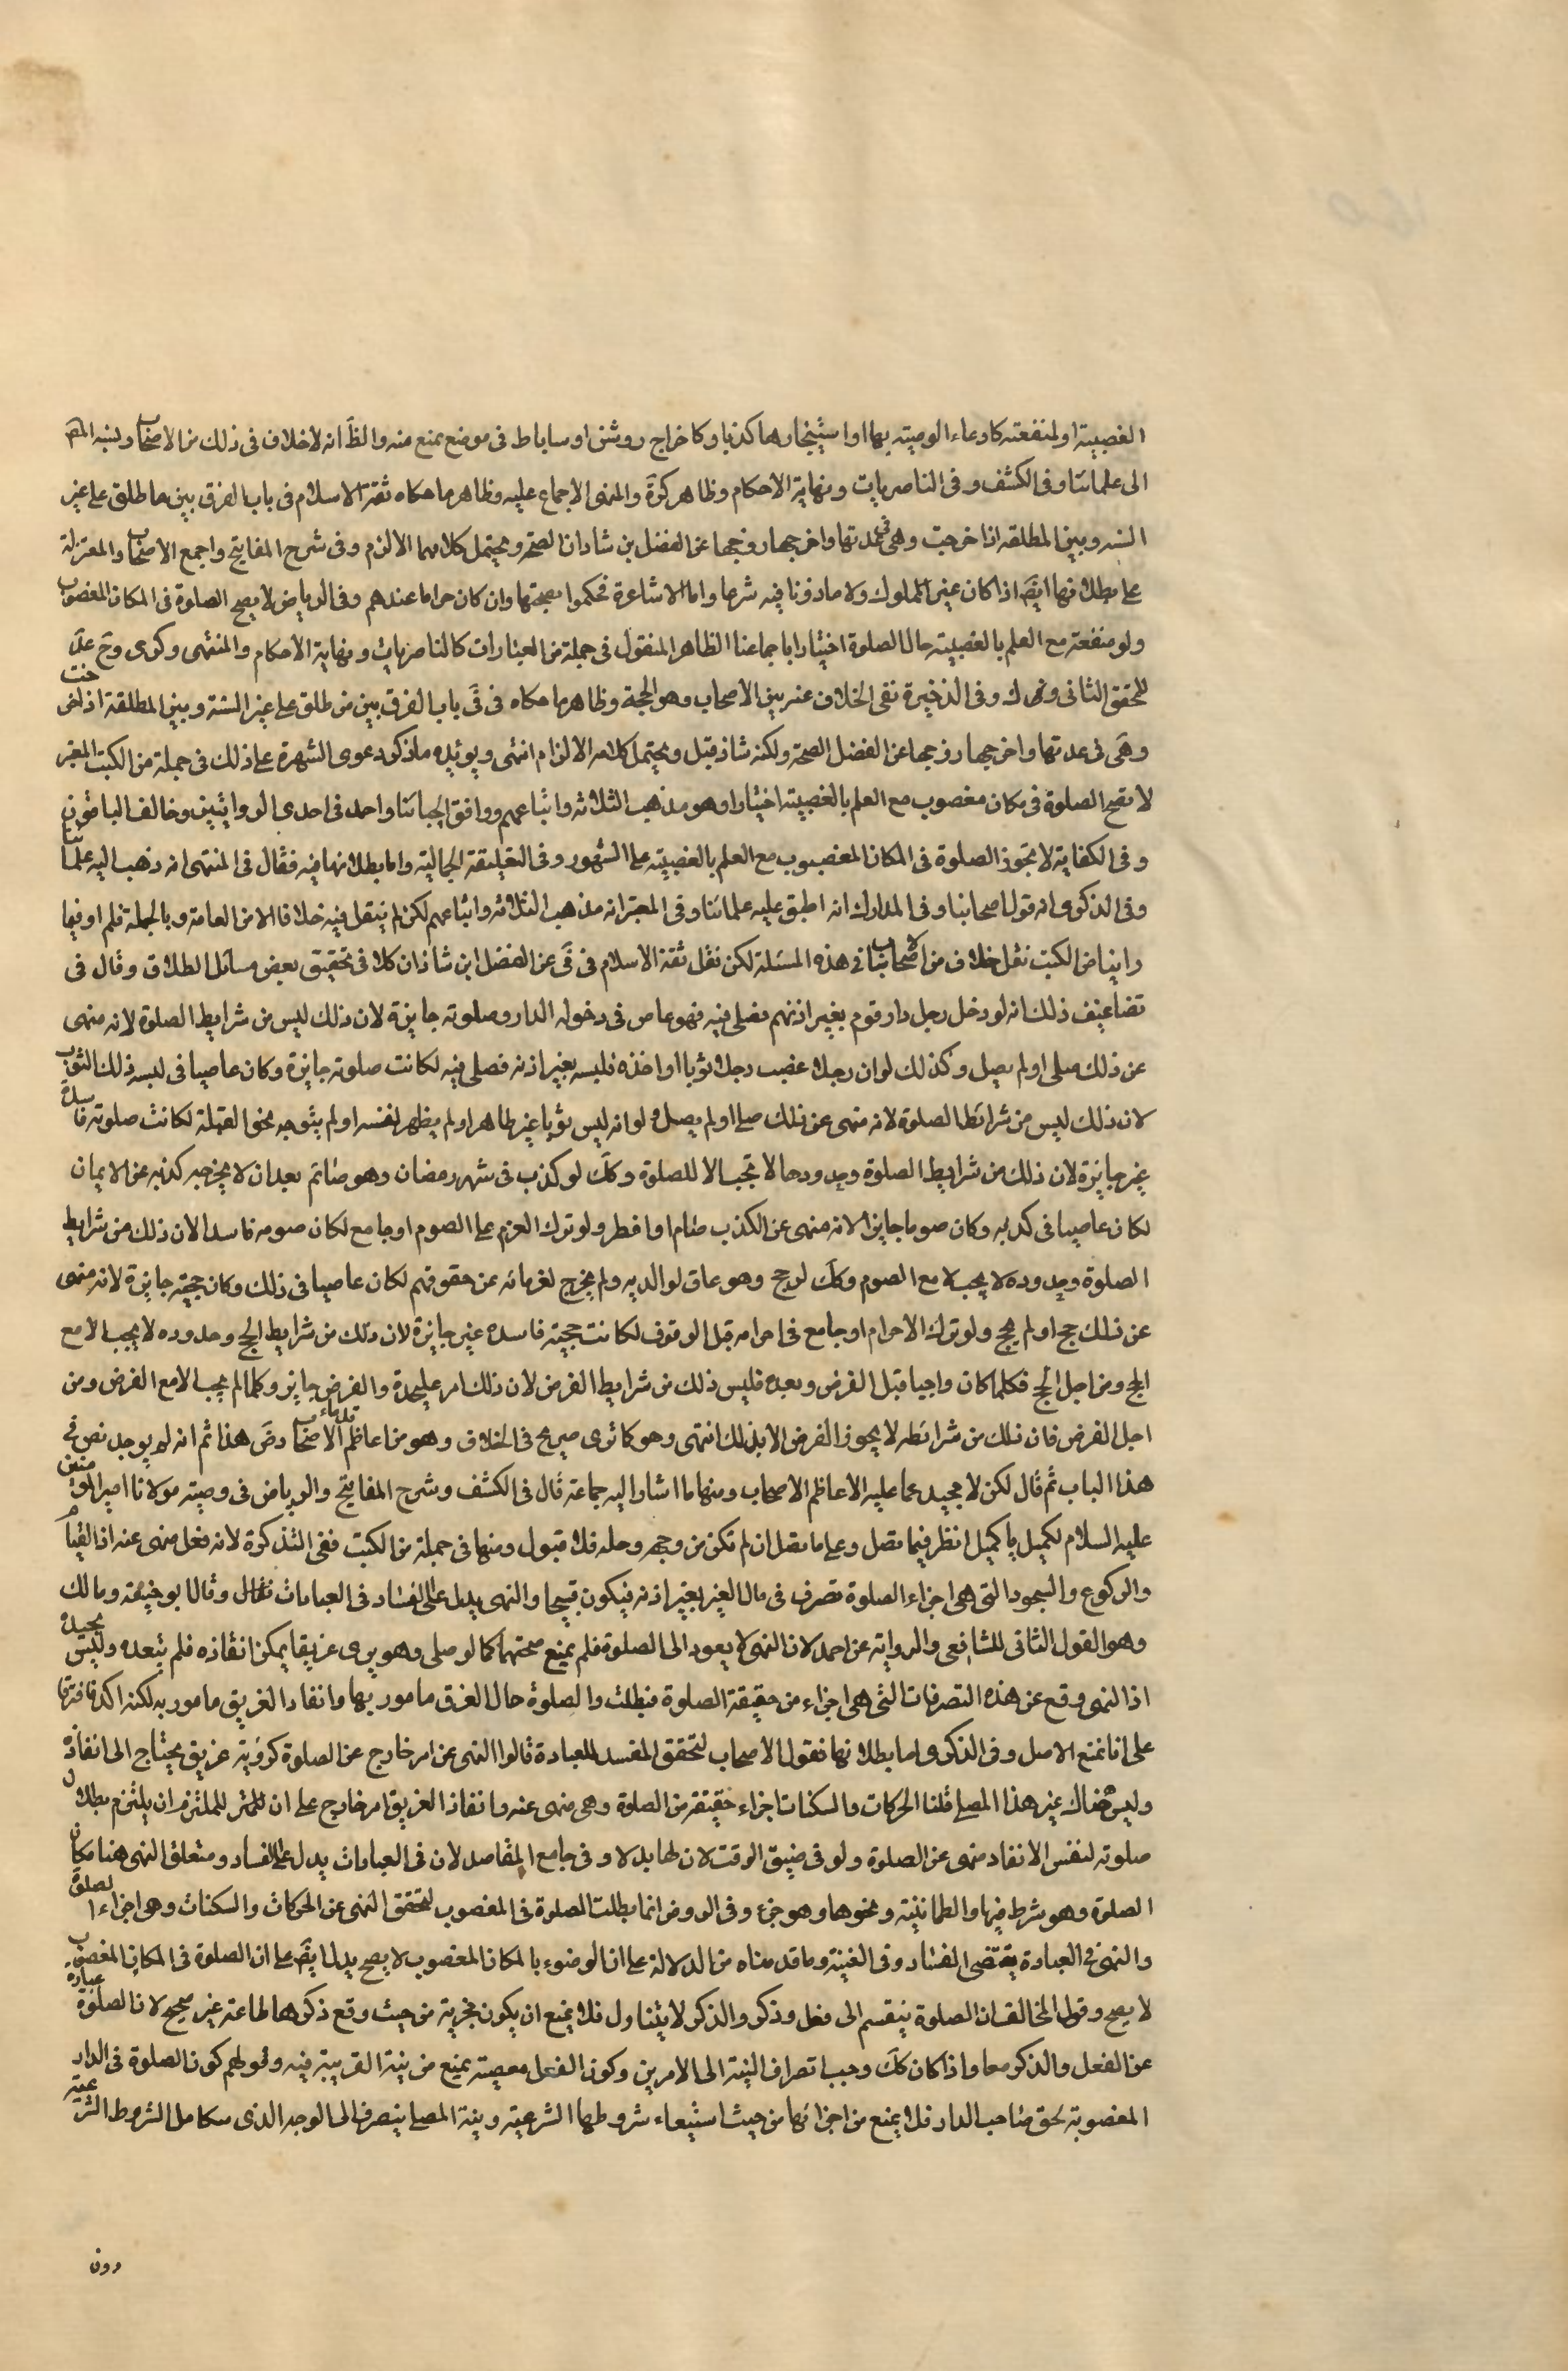 الغصبية او لمنفعته كادعاء الوصيته بها او استيجارها كذبا وكاخراج روشن او ساباط فى موضع يمنع منه والظَ انه لاخلاف فى ذلك من الاصحاب ونسبه المص
الى علمائنا وفى الكشف وفى الناصريات ونهاية الاحكام وظاهر كرَة والمنهى الاجماع عليه وظاهر ما حكاه ثقة الاسلام فى باب الفرق بين ما طلق على غير
السنه وبين المطلقه اذا خرجت وهى فى عدتها واخرجها زوجها عن الفضل بن شادان الصحة ويحتمل كلامهما الالزم وفى شرح المفاتيح واجمع الاصحاب والمعتزلة
على بطلانها ايضَ اذا كان غير المملوك ولا ماذونا فيه شرعا واما الاشاعرة فحكموا بصحتها وان كان حراما عندهم وفى الرياض لا يصح الصلوة فى المكان المغصوب
ولو منفعته مع العلم بالغصبيته حال الصلوة اختيارا باجماعنا الظاهر المنقول فى جملة من العبارات كالناصريات ونهاية الاحكام والمنتهى وكرى وحَ عد
للمحقق الثانى و ك وفى الذخيرة نفى الخلاف عنه بين الاصحاب وهو الحجة وظاهر ما حكاه فى فَى باب الفرق بين من طلق على غير السنة وبين المطلقة اذا خرجت
وهَى فى عدتها واخرجها زوجها عن الفضل الصحة ولكنه شاذ قبل ويحتمل كلامه الالزام انتهى ويويده ما ذكر دعوى الشهرة على ذلك فى جملة من الكتب المعتبر
لا تصح الصلوة فى مكان مغصوب مع العلم بالغصبيته اختيارا وهو مذهب الثلاثه واتباعهم ووافق الجبائنا واحمد فى احدى الروايتين وخالف الباقون
وفى الكفاية لا تجوز الصلوة فى المكان المغصوب مع العلم بالغصبيته على الشهور وفى التعليقة الجمالية واما بطلانها فيه فقال فى المنتهى انه ذهب اليه علمائنا
وفى الذكرى انه قول اصحابنا وفى المدارك انه اطبق عليه علمائنا وفى المعتبر انه مذهب الثلاثه واتباعهم لكن لم ينقل فيه خلافا الا من العامة وبالجملة فلم ار فيما
راينا من الكتب نقل خلاف من اصحابنا فى هذه المسئلة لكن نقل ثقة الاسلام فى فَى عن الفضل ابن شاذان كلاما فى تحقيق بعض مسائل الطلاق وقال فى
تضاعيف ذلك انه لو دخل رجل دار قوم بغير اذنهم فصلى فيه فهو عاص فى دخوله الدار وصلوته جايزة لان ذلك ليس من شرايط الصلوة لانه منهى
عن ذلك صلى او لم يصل وكذلك لو ان رجلا غصب رجلا ثوبا او اخذه فلبسه بغير اذنه فصلى فيه لكانت صلوته جايزة وكان عاصيا فى لبسه ذلك الثوب
لان ذلك ليس من شرائط الصلوة لانه منهى عن ذلك صلى او لم يصل ولو انه لبس ثوبا غير طاهر او لم يطهر نفسه او لم يتوجه نحو القبلة لكانت صلوته فاسدة
غير جايزة لان ذلك من شرايط الصلوة وحدودها لا تجب الا للصلوة وكلَك لو كذب فى شهر رمضان وهو صائم بعد ان لا يخرجه كذبه عن الايمان
لكان عاصيا فى كذبه وكان صوما جايزا لانه منهى عن الكذب صام او افطر ولو ترك العزم على الصوم او جامع لكان صومه فاسدا لان ذلك من شرايط
الصلوة وحدوده لا يجب الا مع الصوم وكلَك لو حج وهو عاق لوالديه ولم يخرج لغرمائه عن حقوقهم لكان عاصيا فى ذلك وكان حجته جايزة لانه منهى
عن ذلك حج او لم يحج ولو ترك الاحرام او جامع فى احرامه قبل الوقوف لكانت حجته فاسدة غير جايزة لان ذلك من شرايط الحج وحدوده لا يجب الا مع
الحج ومن اجل الحج فكلما كان واجبا قبل الفرض وبعده فليس ذلك من شرايط الفرض لان ذلك امر عليحدة والفرض جايز وكلما لم يجب الا مع الفرض ومن
اجل الفرض فان ذلك من شرائطه لا يجوز الفرض الا بذلك انتهى وهو كما ترى صريح فى الخلاف وهو من اعاظم قدماء الاصحاب وضَ هذا ثم انه لم يوجد نص فى
هذا الباب ثم قال لكن لا محيد عما عليه الاعاظم الاصحاب ومنها ما اشار اليه جماعة قال فى الكشف وشرح المفاتيح والرياض فى وصيته مولانا امير المومنين
عليه السلام لكميل يا كميل انظر فيما تصل وعلى ما تصل ان لم تكن من وجهه وحله فلا قبول ومنها فى جملة من الكتب ففى التذكرة لانه فعل منهى عنه اذ القيام
والركوع والسجود التى هى اجزاء الصلوة تصرف فى مال الغير بغير اذنه فيكون قبيحا والنهى يدل على الفساد فى العبادات فقال وقال ابو حنيفه ومالك
وهو القول الثانى للشافعى والرواية عن احمد لان النهى لا يعود الى الصلوة فلم يمنع صحتها كما لو صلى وهو يرى غريقا يمكن انقاذه فلم ينعده وليس بجيدة
اذ النهى وقع عن هذه التصرفات التى هى اجزاء من حقيقة الصلوة فبطلت والصلوة حال الغرق مامور بها وانقاد الغريق مامور به لكنه اكد فافترقا
على انا نمنع الاصل وفى الذكرى اما بطلانها فقول الاصحاب لتحقق المفسد للعبادة قالوا النهى عن امر خارج عن الصلوة كرؤية غريق يحتاج الى انقاذه
وليس هناك غير هذا المصلى قلنا الحركات والسكنات اجزاء حقيقة من الصلوة وهى منهى عنه وانقاذ الغريق امر خارج على ان للملتزم ان يلتزم بطلان
صلوته لنفس الانقاد منهى عن الصلوة ولو فى ضيق الوقت لان لها بدلا وفى جامع المقاصد لان فى العبادات يدل على الفساد ومتعلق النهى هنا مكان
الصلوة وهو شرط فيها والطمانينة ونحوها وهو جزء وفى الروض انما بطلت الصلوة فى المغصوب لتحقق النهى عن الحركات والسكنات وهى اجزاء الصلوة
والنهى فى العبادة يقتضى الفساد وفى الغنية وما قدمناه من الدلالة على ان الوضوء بالمكان المغصوب لا يصح يدل ايضَ على ان الصلوة فى المكان المغصوب
لا يصح وقول المخالف ان الصلوة ينقسم الى فعل وذكر والذكر لا يتناول فلا يمنع ان يكون مجزية من حيث وقع ذكرها طاعته غير صحيح لان الصلوة عبارة
عن الفعل والذكر معا واذا كان كلَك وجب انصراف النية الى الامرين وكون الفعل معصيته يمنع من نية القربة فيه وقولهم كون الصلوة فى الدار
المغصوبة لحق صاحب الدار فلا يمنع من اجزائها من حيث استيعاء شروطها الشرعية ونية المصلى ينصرف الى الوجه الذى سكامل الشروط الشرعية
دون